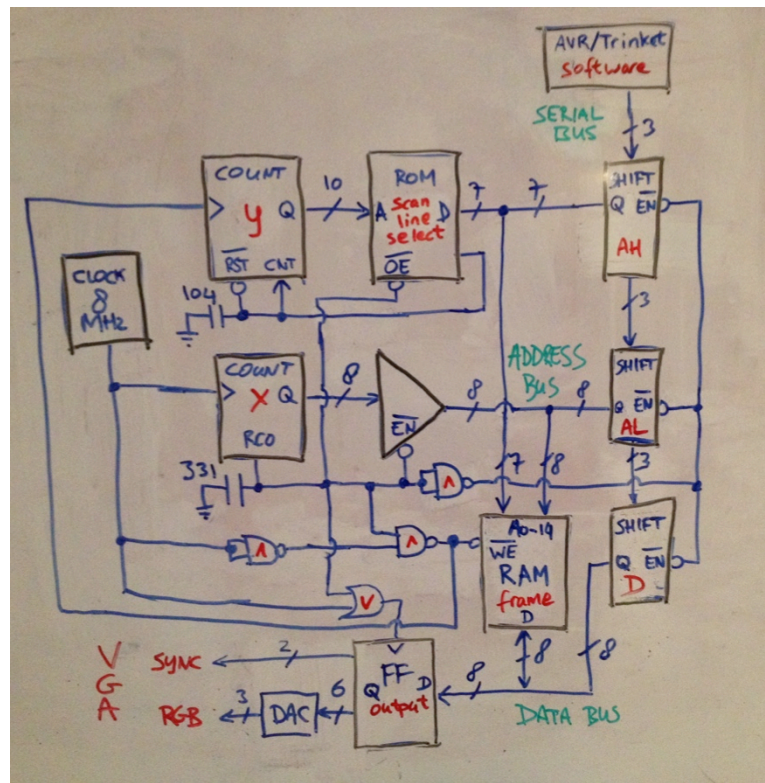 AVR/Trinket
software
SERIAL
BUS
3
COUNT
y Q
RST CNT
10
ROM
A scan D
line
select
OE
7
7
SHIFT
Q EN
AH
CLOCK
8
MHz
104
3
COUNT
X Q
RCO
8
EN
8
ADDRESS
BUS
8
SHIFT
Q EN
AL
331
7
8
3
Λ
Λ
Λ
A0-14
WE
RAM
frame
D
SHIFT
Q EN
D
V
8
8
V
G
A
SYNC
2
RGB
3
DAC
6
FF
Q D
output
8
DATA BUS